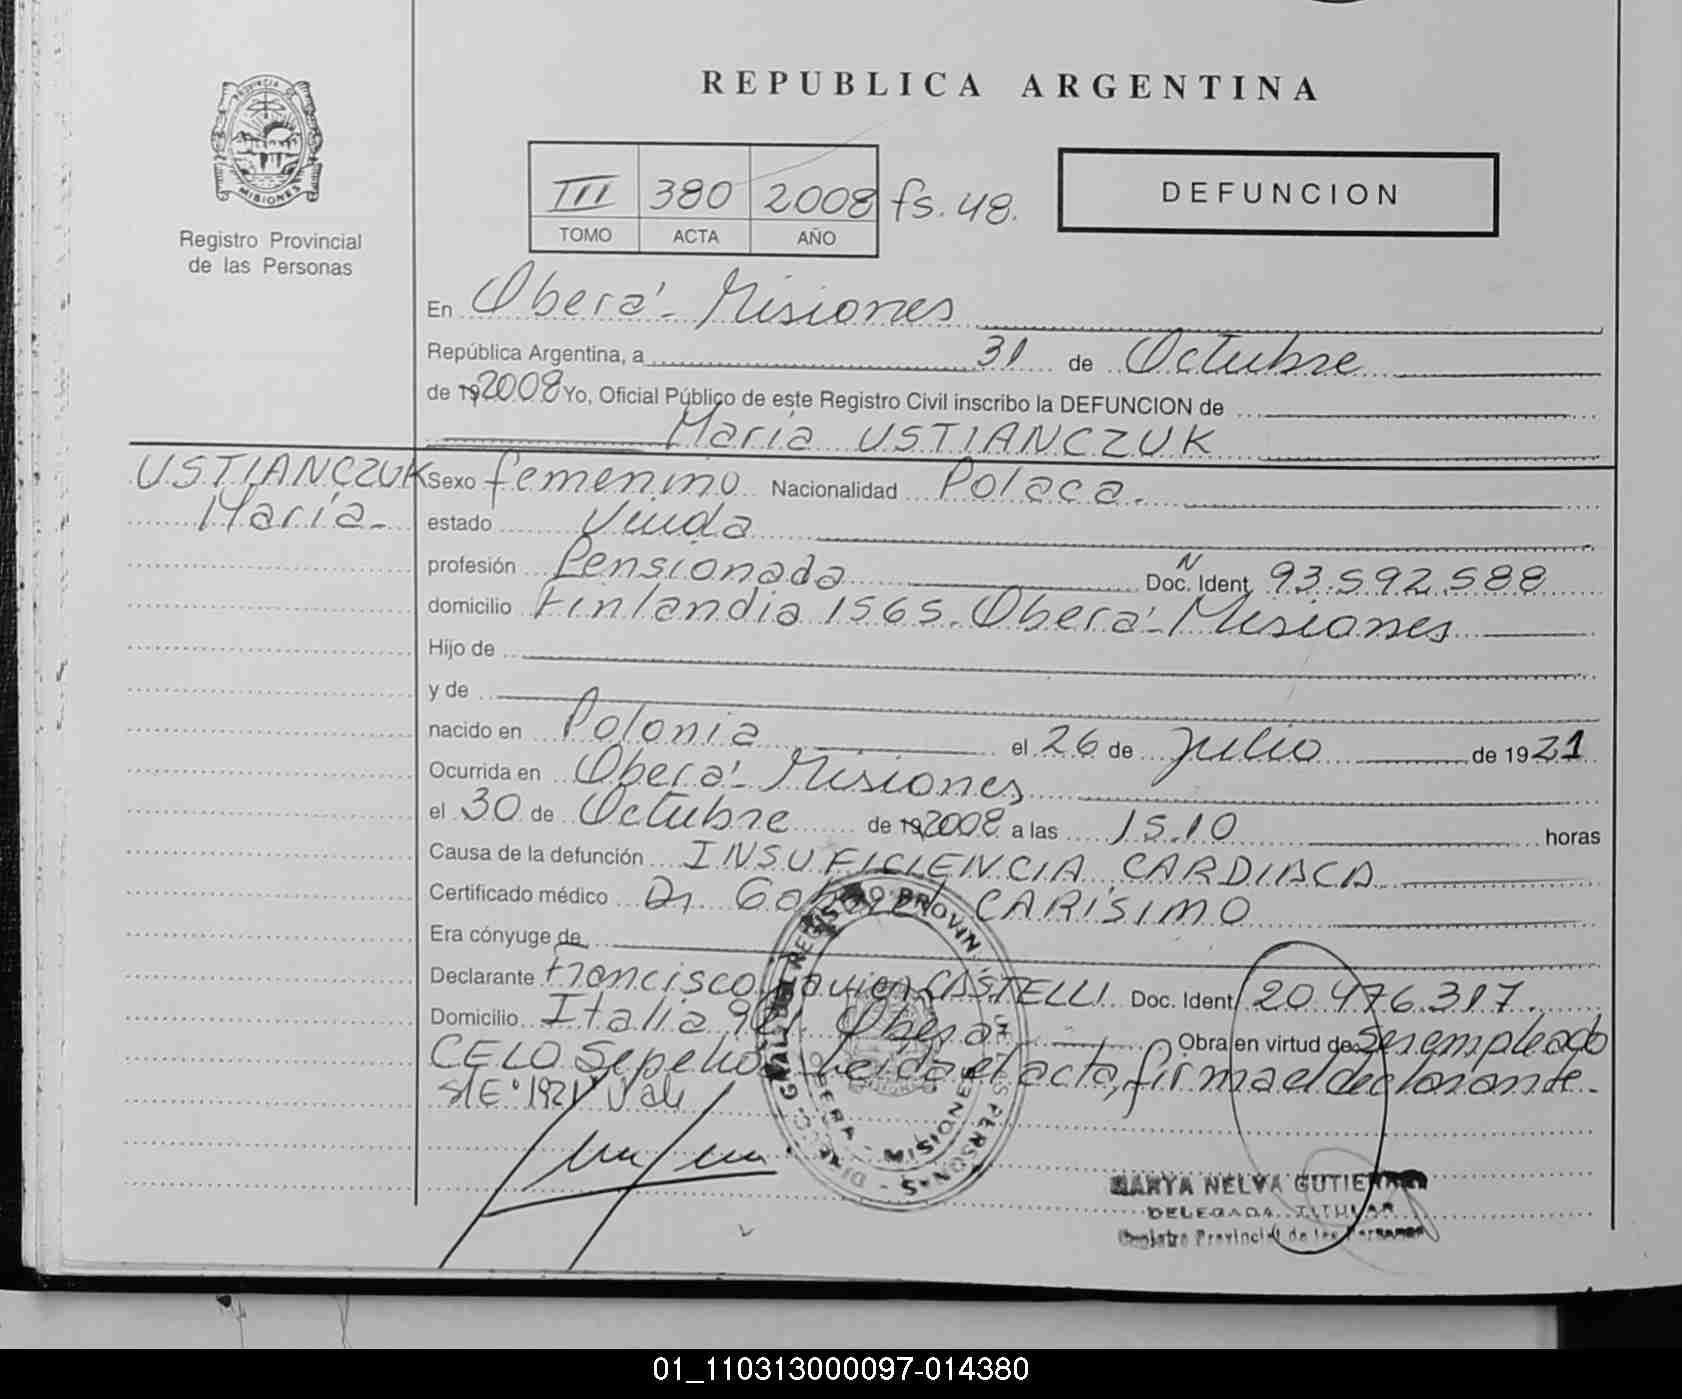 REPUBLICA ARGENTINA
PROVINCIA DE
MISIONES
Registro Provincial
de las Personas
III 380 2008 fs. 48.
TOMO ACTA AÑO
DEFUNCION
En Oberá - Misiones
República Argentina, a 31 de Octubre
de 19 2008 Yo, Oficial Público de este Registro Civil inscribo la DEFUNCION de
María USTIANCZUK
USTIANCZUK
María-
Sexo femenino Nacionalidad Polaca.
estado Viuda
profesión Pensionada Doc. Ident. N 93.592.588
domicilio Finlandia 1565. Oberá - Misiones
Hijo de
y de
nacido en Polonia el 26 de Julio de 1921
Ocurrida en Oberá - Misiones
el 30 de Octubre de 19 2008 a las 15.10 horas
Causa de la defunción INSUFICIENCIA CARDIACA
Certificado médico Dr Gabriel CARISIMO
Era cónyuge de
Declarante Francisco Javier CASTELLI Doc. Ident. 20.476.317
Domicilio Italia 921 Oberá Obra en virtud de Ser empleado
CELO Sepelios. Leída el acta, firma el declarante.
s/E: 1921 Vale
REGISTRO PROVIN. DE LAS PERSONAS - DIREC. GRAL. DEL
OBERA - MISIONES
MARYA NELVA GUTIERREZ
DELEGADA TITULAR
Registro Provincial de las Personas
01_110313000097-014380